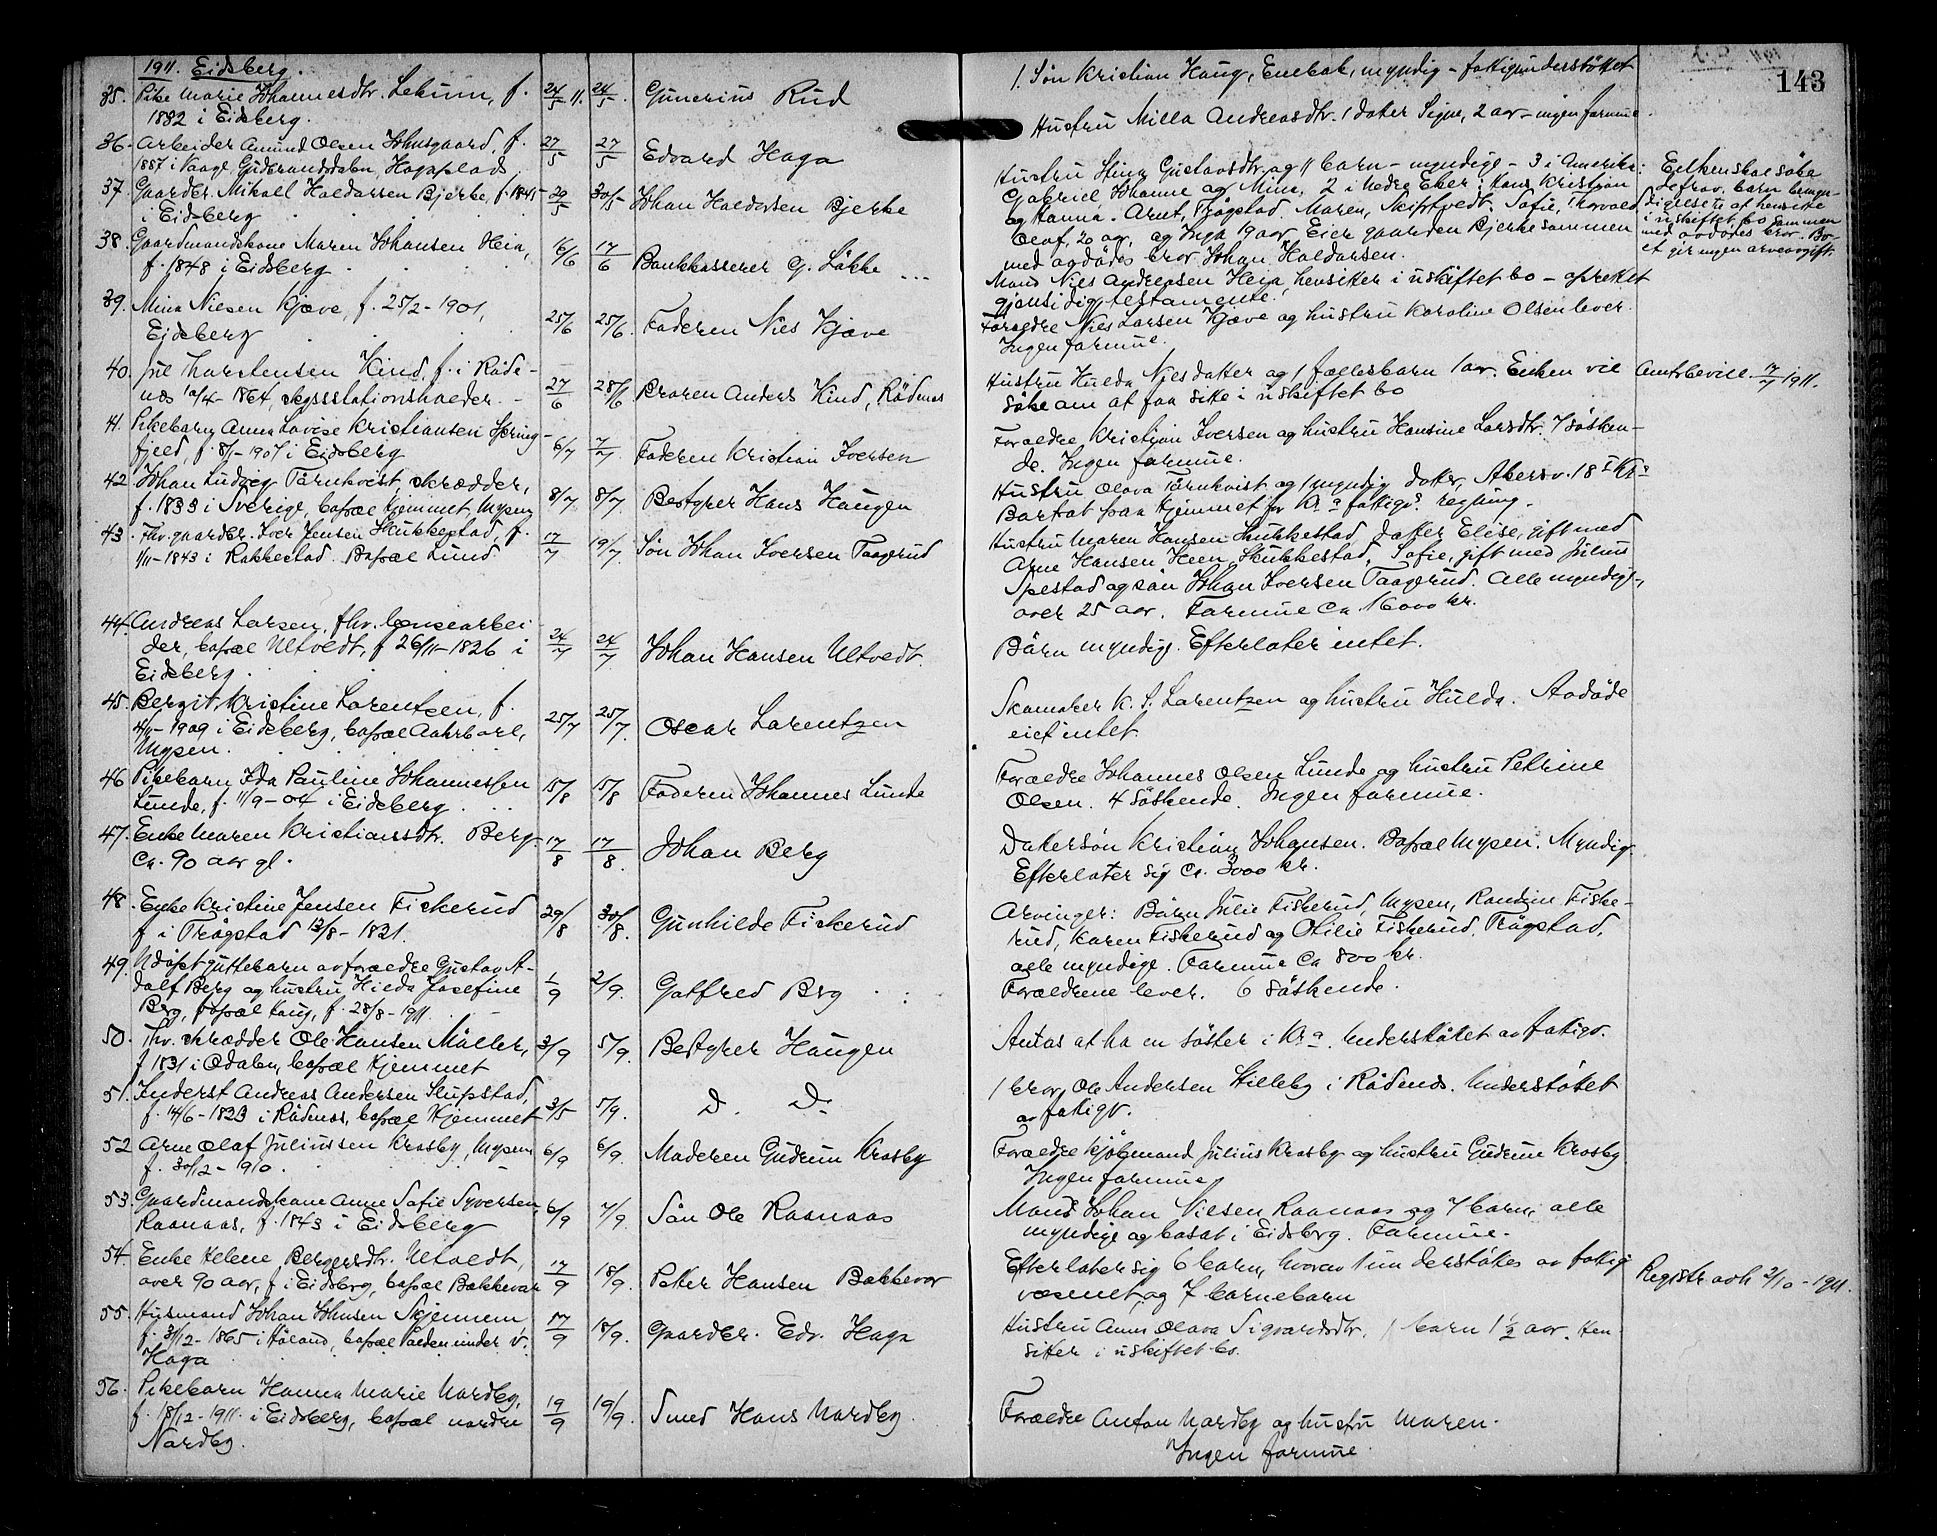 143
1911. Eidsberg.
35. Pike Marie Johannesdtr. Lekum, f. 24/5 11. 24/5. Gunerius Rud 1. Søn Kristian Haug, Enebak, myndig – fattigunderstöttet
1882 i Eidsberg.
36. Arbeider Amund Olsen f. 27/5 27/5 Edvard Haga Hustru Milla Andreasdtr. 1 datter Signe, 2 aar – ingen formue
1887 i Vaage, Gudbrandsdalen, Hagaplads
37. Gaardbr. Mikael Haldorsen Bjerke, f. 1845 29/5 30/5 Johan Haldorsen Bjerke Hustru Stine Gustavsdtr. og 11 barn – myndige – 3 i Amerika:
i Eidsberg Gabriel, Johanne og Mina, 2 i Nedre Eker: Hans Kristian
og Hanna. Arnt, Trögstad. Maren, Skiptvedt. Sofie, Thorvald,
Olaf, 20 aar, og Inga 19 aar. Eier gaarden Bjerke sammen
med avdödes bror Johan Haldorsen.
Enken skal söke
i uskiftet bo sammen
med avdödes bror. Bo-
et gir ingen arveavgift.
38. Gaardmandskone Maren Johansen Heia, 16/6 17/6 Bankkasserer G. Løkke Mand Nils Andreasen Heia, hensitter i uskiftet bo – oprettet
f. 1848 i Eidsberg gjensidig testamente.
39. Mina Nilsen Kjæve, f. 25/2 – 1901, 25/6 25/6. Faderen Nils Kjæve Forældre Nils Larsen Kjæve og hustru Karoline Olsen lever.
Eidsberg Ingen formue.
40. Jul Thorstensen Kind, f. i Röde- 27/6 28/6 Broren Anders Kind, Rödnes Hustru Hulda Nilsdatter og 1 fællesbarn 1 aar. Enken vil Amtsbevill. 17/7 1911.
næs 10/4 – 1864, skysstationsholder. söke om at faa sitte i uskiftet bo
41. Pikebarn Anna Lovise Kristiansen Spring- 6/7 7/7. Faderen Kristian Iversen Forældre Kristian Iversen og hustru Hansine Larsdtr. 7 sösken-
fjeld, f. 8/1 – 1907 i Eidsberg de. Ingen formue.
42 Johan Ludvig Törnkvist, skrædder, 8/7 8/7. Bestyrer Hans Haugen Hustru Olava Törnkvist og 1 myndig datter, Akersv. 18 I Kr.a
f. 1833 i Sverige, bopæl Hjemmet, Mysen Bortsat paa Hjemmet for Kr.a fattigv. regning.
43. Fhv. gaardbr. Iver Jensen Skukkestad, f. 17/7 19/7. Søn Johan Iversen Taagerud Hustru Maren Hansen Skukkestad, Datter Elise, gift med
1/11 – 1843 i Rakkestad. Bopæl Lund Arne Hansen Heen, Skukkestad, Sofie, gift med Julius
Spestad og søn Johan Iversen Taagerud. Alle myndige,
over 25 aar. Formue ca. 16000 kr.
44. Andreas Larsen, fhv. löusearbei- 24/7 24/7 Johan Hansen Ultvedt. Börn myndige. Efterlater intet.
der, bopæl Ultvedt, f. 26/11 – 1826 i
Eidsberg.
45. Bergit Kristine Lorentzen, f. 25/7 25/7. Oscar Lorentzen Skomaker K. S. Lorentzen og hustru Hulda. Avdöde
4/11 – 1909 i Eidsberg, bopæl eiet intet
Mysen.
46 Pikebarn Ida Pauline Johannessen 15/8 15/8 Faderen Johannes Lunde Forældre Johannes Olsen Lunde og hustru Petrine
Lunde, f. 11/9 – 04 i Eidsberg Olsen. 4 söskende. Ingen formue.
47. Enke Maren Kristiansdtr. Berg 17/8 17/8. Johan Berg Dattersön Kristian Johansen. Bopæl Mysen. Myndig.
ca. 90 aar gl. Efterlater sig ca. 3000 kr.
48. Enke Kristine Jensen Fiskerud 29/8 30/8. Gunhilde Fiskerud Arvinger: Börn Julie Fiskerud, Mysen, Randine Fiske-
f. i Trögstad 12/8 – 1821. rud, Karen Fiskerud og Otilie Fiskerud, Trögstad,
alle myndige. Formue ca 800 kr.
49. Udöpt guttebarn av forældre Gustav A- 1/9 2/9. Gotfred Brg Forældrene lever. 6 söskende.
dolf Berg og hustru Hilda Josefine
Berg, bopæl Haug, f. 28/8 – 1911.
50. Fhv. skrædder Ole Hansen Möller, 3/9 5/9. Bestyrer Haugen Antas at ha en söster i Kr.a Understöttet av fattigv.
f. 1831 i Odalen, bopæl Hjemmet
51. Inderst Andreas Andersen Slupstad, 3/5 5/9. D. D. 1 bror, Ole Andersen Hilleby i Rödenes. Understöttet
f. 14/6 – 1833 i Rödenes, bopæl Hjemmet av fattigv.
52 Arne Olaf Juliussen Krosby, Mysen 6/9 6/9. Moderen Gudrun Krosby Forældre Kjøbmand Julius Krosby og hustru Gudrun Krosby.
f. 30/12 – 910. Ingen formue
53. Gaardmandskone Anne Sofie Syversen 6/9 7/9. Søn Ole Raanaas Mand Johan Nilsen Raanaas og 7 barn, alle
Raanaas, f. 1843 i Eidsberg myndige og bosat i Eidsberg. Formue.
54. Enke Helene Bergersdtr. Ultvedt, 17/9 18/9. Petter Hansen Bakkevar Efterlater sig 6 barn, hvorav 1 understöttes av fattig- Registr. avh. 2/10 – 1911.
over 90 aar, f. i Eidsberg, bopæl Bakkevar væsenet, og 7 barnebarn
55. Husmand Johan Johnsen Skjennem 17/9 18/9. Gaardbr. Edv. Haga Hustru Anne Olava Sigvardsdtr. 1 barn 1 1/2 aar. Hen-
f. 31/12 – 1865 i Höland, bopæl under V. sitter i uskiftet bo.
Haga
56. Pikebarn Hanna Marie Nordby, 19/9 19/9. Smed Hans Nordby. Forældre Anton Nordby og hustru Maren.
f. 18/12 – 1911. i Eidsberg, bopæl nordre Ingen formue.
Nordby.